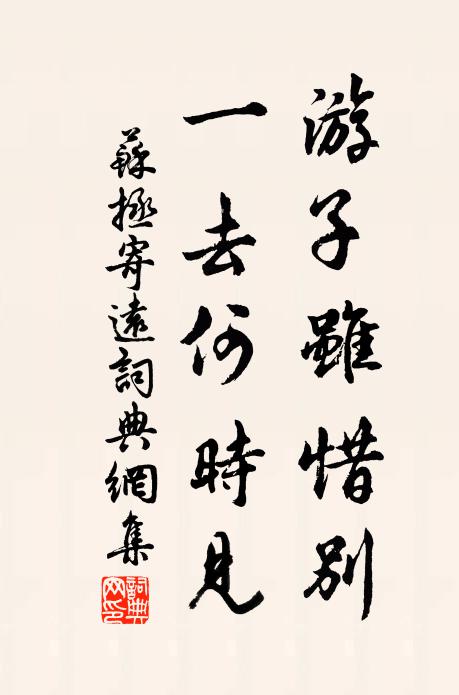 游子雖惜別
一去何時見
蘇拯寄遠詞典網集
詞典
网印